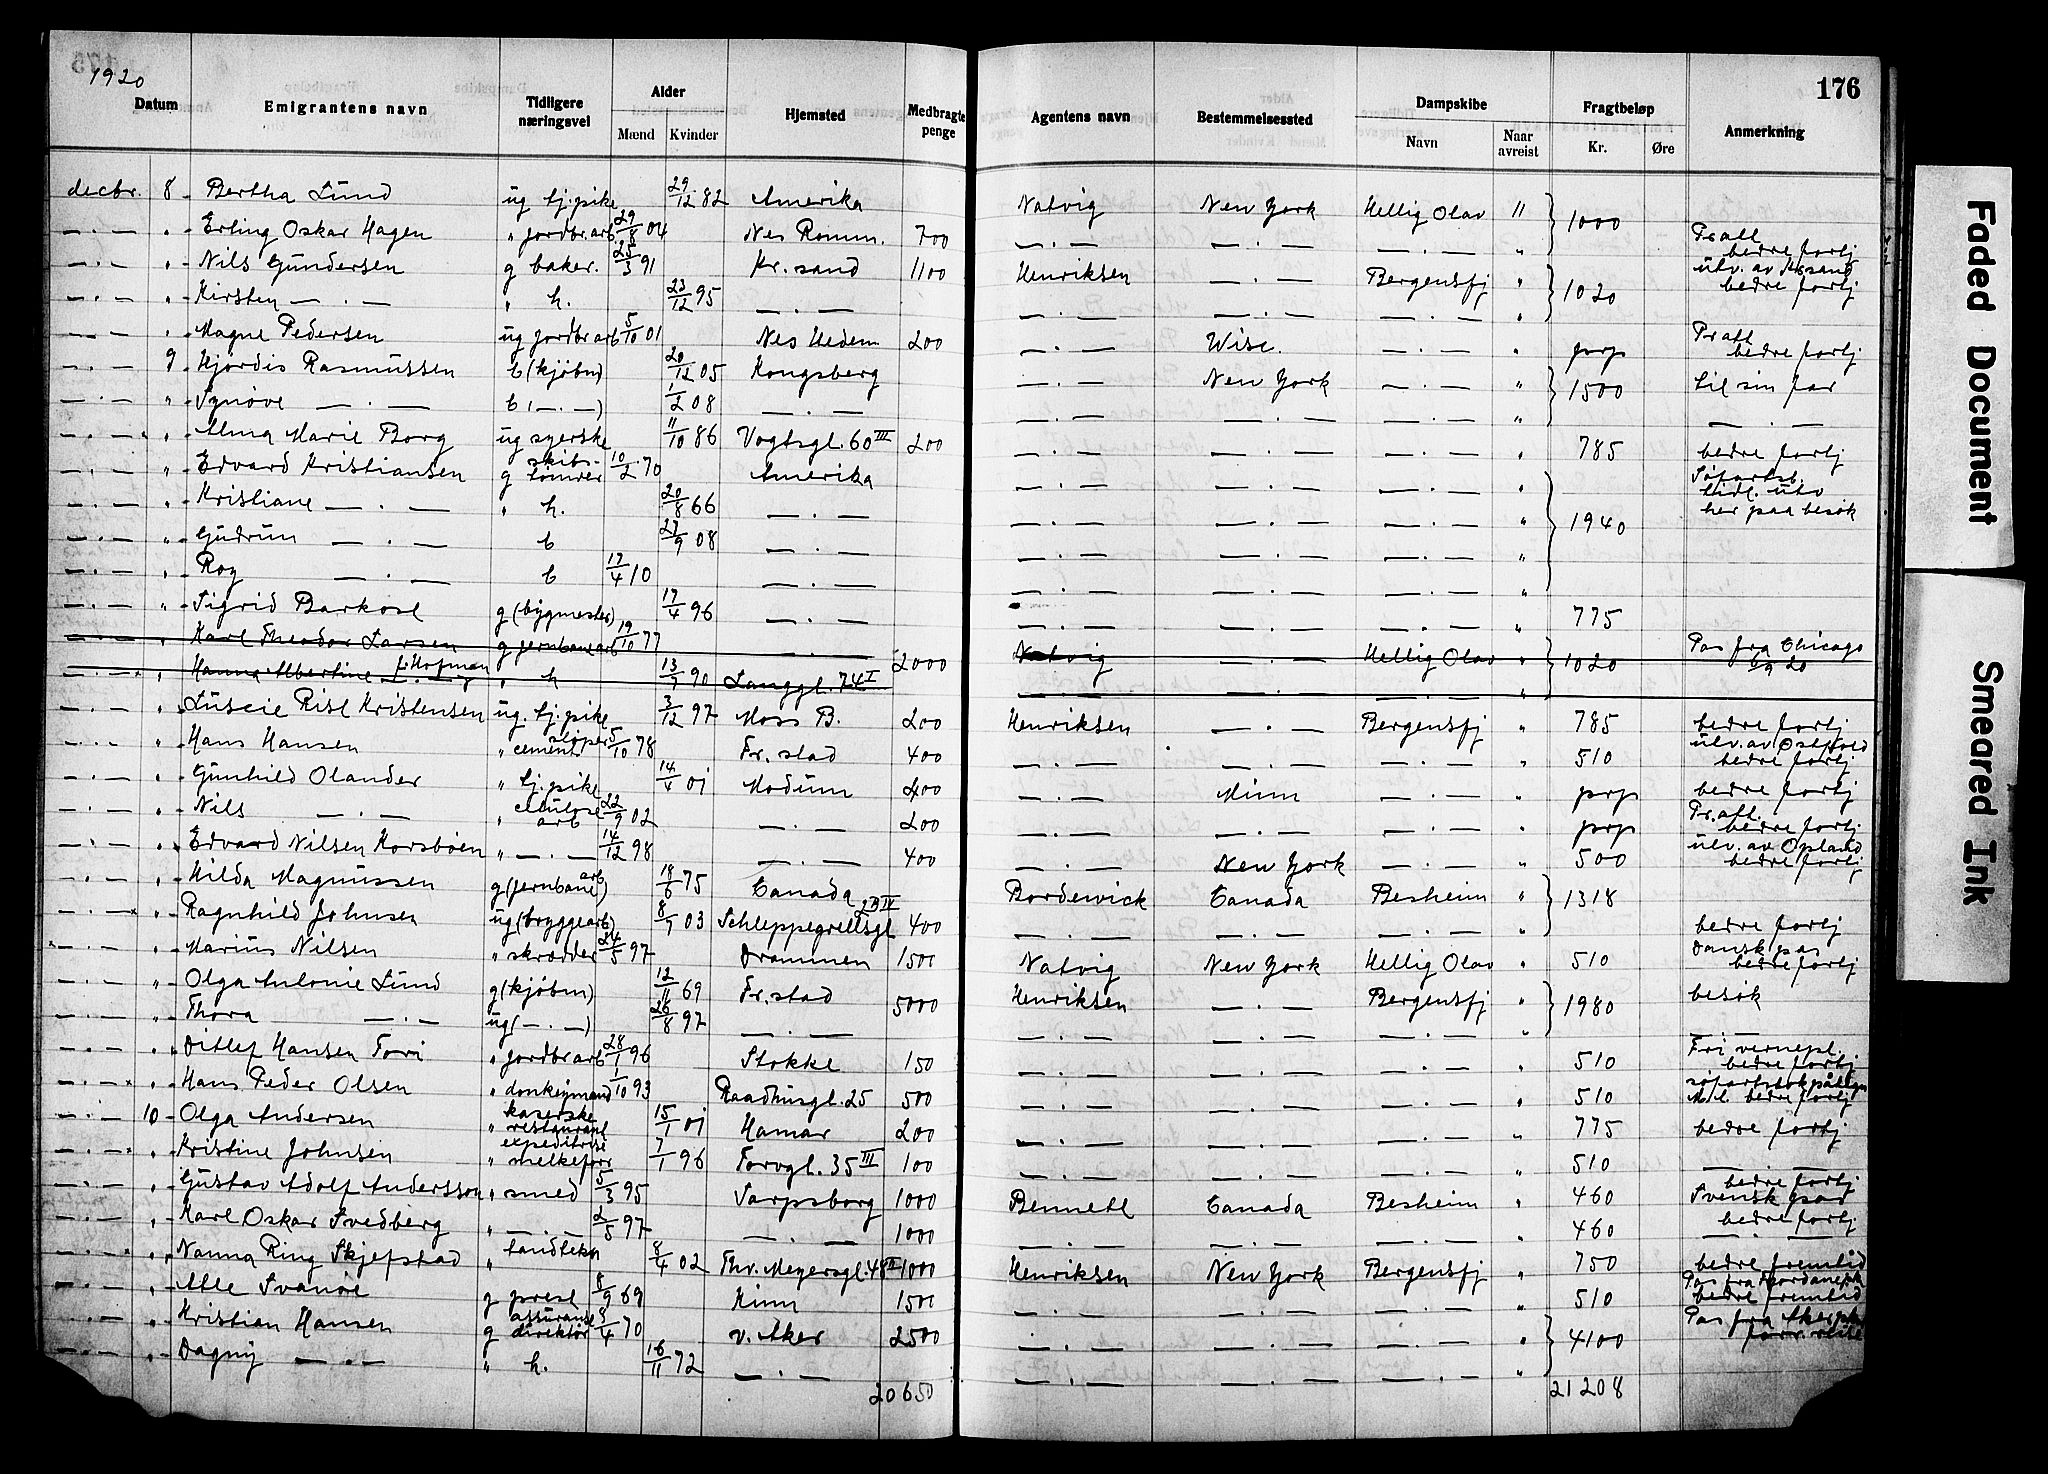 1920
176
Datum Emigrantens navn Tidligere næringsvei Alder Mænd Kvinder Hjemsted Medbragte penge Agentens navn Bestemmelsessted Dampskibe Navn Naar avreist Fragtbeløp Kr. Øre Anmerkning
decbr. 8 Bertha Lund ug tj.pike 29/12 82 Amerika Natvig New York Hellig Olav 11 1000
— . — " Erling Oskar Hagen " jordbr.arb 29/8 04 Nes Romm. 700 — . — — . — — . — " Pr att bedre fortj
— . — " Nils Gundersen g baker. 25/3 91 Kr.sand 1100 Henriksen — . — Bergensfj " 1020 utv. av Kr.sand bedre fortj
— . — " Kirsten — . — " h. 23/12 95 — . — — . — — . — — . — "
— . — " Magne Pedersen ug jordbrarb 5/10 01 Nes Hedem 200 — . — Wisc. — . — " prp Pr att bedre fortj
— . — 9 Hjördis Rasmussen b (kjøbm) 20/12 05 Kongsberg — . — New York — . — " 1500 til sin far
— . — " Synöve — . — b (— . —) 1/2 08 — . — — . — — . — — . — " — . —
— . — " Alma Marie Borg ug syerske 11/10 86 Vogtsgt. 60 III 200 — . — — . — — . — " 785 bedre fortj
— . — " Edvard Kristiansen g skibs- tömrer 10/2 70 Amerika — . — — . — — . — " 1940 Søfartsb. tidl. utv
— . — " Kristiane — . — " h. 20/8 66 — . — — . — — . — — . — " her paa besök
— . — " Gudrun — . — b 27/9 08 — . — — . — — . — — . — "
— . — " Roy — . — b 17/4 10 — . — — . — — . — — . — "
— . — " Sigrid Barkost g (bygmester) 17/4 96 — . — — . — — . — — . — " 775
— . — " Karl Theodor Larsen g jernbanearb 19/10 77 — . — 2000 Natvig — . — Hellig Olav " 1020 Pas fra Chicago 6/9 20
— . — " Hanna Albertine — . — f. Hofman " h 13/7 90 Langgt. 74 I — . — — . — — . — "
— . — " Luscie Rist Kristensen ug. tj.pike 3/12 97 Moss B. 200 Henriksen — . — Bergensfj " 785 bedre fortj
— . — " Hans Hansen " cementstøper 5/10 78 Fr.stad 400 — . — — . — — . — " 510 utv. av Østfold bedre fortj
— . — " Gunhild Olander " tj.pike 14/4 01 Modum 400 — . — Minn — . — " prp bedre fortj
— . — " Nils — . — " celulose arb 22/9 02 — . — 200 — . — — . — — . — " prp Pr. att. bedre fortj
— . — " Edvard Nilsen Korsböen " — . — 14/12 98 — . — 400 — . — New York — . — " 500 utv. av Opland bedre fortj
— . — " Hilda Magnussen g (jernbanearb) 18/6 75 Canada Bordewick Canada Besheim " 1318
— . — " Ragnhild Johnsen ug (bryggearb) 8/7 03 Schleppegrellsgt 400 — . — — . — — . — " bedre fortj
— . — " Marius Nilsen " skrædder 24/5 97 Drammen 1500 Natvig New York Hellig Olav " 510 Dansk pas bedre fortj
— . — " Olga Antonie Lund g (kjøbm) 12/11 69 Fr.stad 5000 Henriksen — . — Bergensfj " 1980 besök
— . — " Thora — . — ug (— . —) 26/8 97 — . — — . — — . — — . — " — . —
— . — " Ditlef Hansen Fori " jordbrarb 28/1 96 Stokke 150 — . — — . — — . — 510 Fri vernepl. bedre fortj
— . — " Hans Peder Olsen " donkeymand 1/10 93 Raadhusgt. 25 500 — . — — . — — . — " 510 bedre fortj
— . — 10 Olga Andersen " kaserske restaurant 15/1 01 Hamar 200 — . — — . — — . — " 775 bedre fortj
— . — " Kristine Johnsen " expeditrise melkeforr 7/1 96 Torvgt. 35 III 100 — . — — . — — . — " 510 — . —
— . — " Gustav Adolf Andersson " smed 5/3 95 Sarpsborg 1000 Bennett Canada Besheim " 460 bedre fortj Svensk pas
— . — " Karl Oskar Svedberg " — . — 2/5 97 — . — 1000 — . — — . — — . — " 460 bedre fortj — . —
— . — " Nanna Ring Skjefstad " tandtekn 8/4 02 Thv. Meyersgt. 48 II 1000 Henriksen New York Bergensfj " 750 bedre fremtid
— . — " Atle Svanöe g prest 8/9 69 Kinn 1500 — . — — . — — . — " 510 bedre fremtid
— . — " Kristian Hansen g assuranse direktör 8/4 70 v. Aker 2500 — . — — . — — . — " 4100 Pas fra Aker forr. reise
— . — " Dagny — . — " h. 16/11 72 — . — — . — — . — — . — "
20650 21208
Faded Document
Smeared Ink